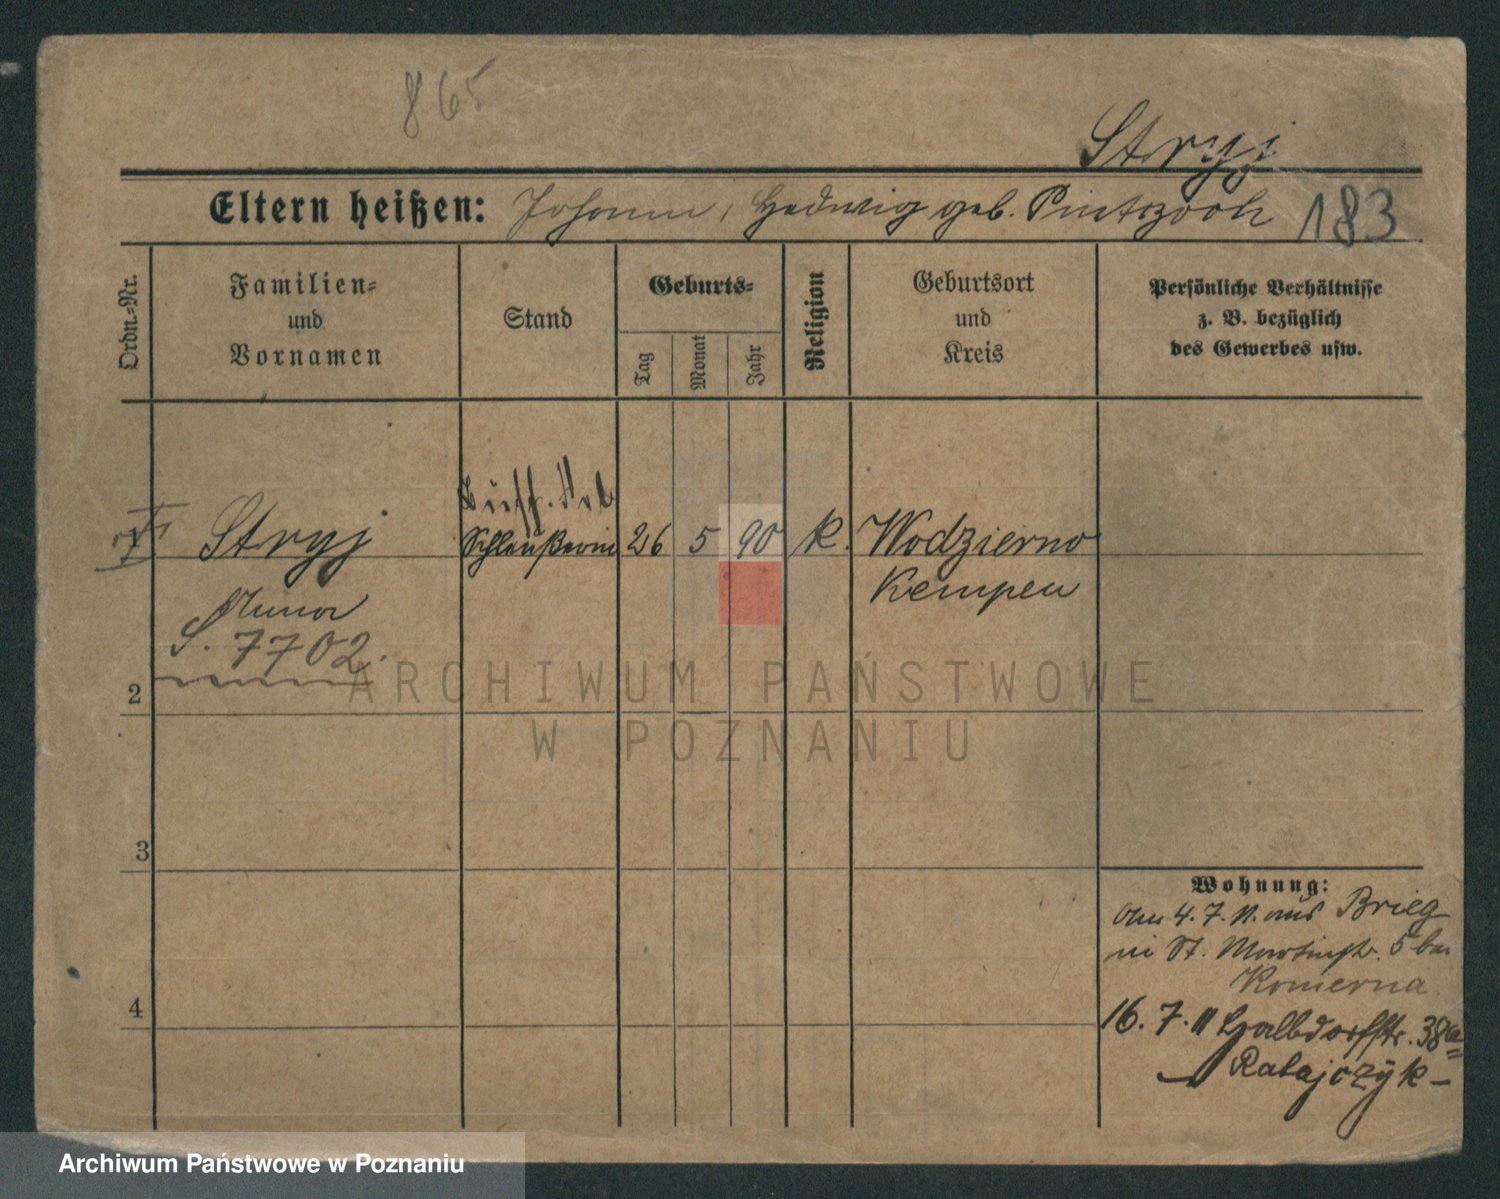 865
Stryj
Eltern heißen: Johann, Hedwig geb. Pintszoch 183
Ordn.-Nr.
Familien=
und
Vornamen
Stand
Geburts=
Tag
Monat
Jahr
Religion
Geburtsort
und
Kreis
Persönliche Verhältnisse
z. B. bezüglich
des Gewerbes usw.
Stryj
26 5 90 k. Wodzierno
Kempen
S. 7702.
2
ARCHIWUM PAŃSTWOWE
W POZNANIU
3
4
Wohnung:
4. 7. 11. aus Brieg
in St. Martinstr. 5 bei
Komerna
16. 7. 11 Halbdorfstr. 38a
Ratajczyk
Archiwum Państwowe w Poznaniu